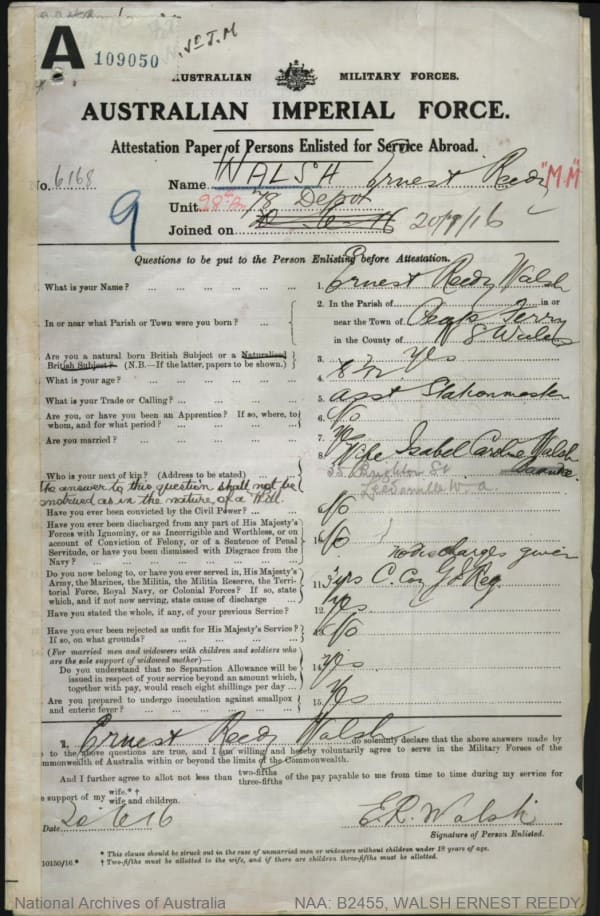 A
109050
AUSTRALIAN MILITARY FORCES.
AUSTRALIAN IMPERIAL FORCE.
Attestation Paper of Persons Enlisted for Service Abroad.
No. 6168
Name WALSH Ernest Reedy "M.M"
Unit 78 Depot
9
Joined on 20/9/16
Questions to be put to the Person Enlisting before Attestation.
What is your Name? ... 1. Ernest Reedy Walsh
In or near what Parish or Town were you born? ... 2. In the Parish of in or
near the Town of Ferry
in the County of
Are you a natural born British Subject or a Naturalised British Subject? (N.B.—If the latter, papers to be shown.) 3. Yes
What is your age? ... 4.
What is your Trade or Calling? ... 5. Asst Stationmaster
Are you, or have you been an Apprentice? If so, where, to whom, and for what period? ... 6. No
Are you married? ... 7. Yes
Who is your next of kin? (Address to be stated) ... 8. Wife Isabel Caroline Walsh
35 Brighton St
Leederville W.a
The answer to this question shall not be
construed as in the nature of a Will.
Have you ever been convicted by the Civil Power? ... 9. No
Have you ever been discharged from any part of His Majesty's Forces with Ignominy, or as Incorrigible and Worthless, or on account of Conviction of Felony, or of a Sentence of Penal Servitude, or have you been dismissed with Disgrace from the Navy? ... 10. No
no discharges given
Do you now belong to, or have you ever served in, His Majesty's Army, the Marines, the Militia, the Militia Reserve, the Territorial Force, Royal Navy, or Colonial Forces? If so, state which, and if not now serving, state cause of discharge 11. 3 yrs C. Coy G I Reg
Have you stated the whole, if any, of your previous Service? 12. Yes
Have you ever been rejected as unfit for His Majesty's Service? If so, on what grounds? ... 13. No
(For married men and widowers with children and soldiers who are the sole support of widowed mother)—
Do you understand that no Separation Allowance will be issued in respect of your service beyond an amount which, together with pay, would reach eight shillings per day ... 14. Yes
Are you prepared to undergo inoculation against smallpox and enteric fever? ... 15. Yes
I, Ernest Reedy Walsh do solemnly declare that the above answers made by
to the above questions are true, and I am willing and hereby voluntarily agree to serve in the Military Forces of the
mmonwealth of Australia within or beyond the limits of the Commonwealth.
And I further agree to allot not less than two-fifths three-fifths of the pay payable to me from time to time during my service for
e support of my wife.*† wife and children.
Date 20/6/16 E.R. Walsh
Signature of Person Enlisted.
10150/16.* * This clause should be struck out in the case of unmarried men or widowers without children under 18 years of age.
† Two-fifths must be allotted to the wife, and if there are children three-fifths must be allotted.
National Archives of Australia NAA: B2455, WALSH ERNEST REEDY